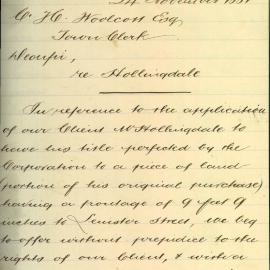 24 November 1881
C. H. Woolcott Esq
Town Clerk
re Hollingdale
In reference to the application
of our Client Mr Hollingdale to
have his title perfected by the
Corporation to a piece of land
portion of his original purchase)
having a frontage of 9 feet 9
inches to Leinster Street, we beg
to offer without prejudice to the
rights of our Client, & with a